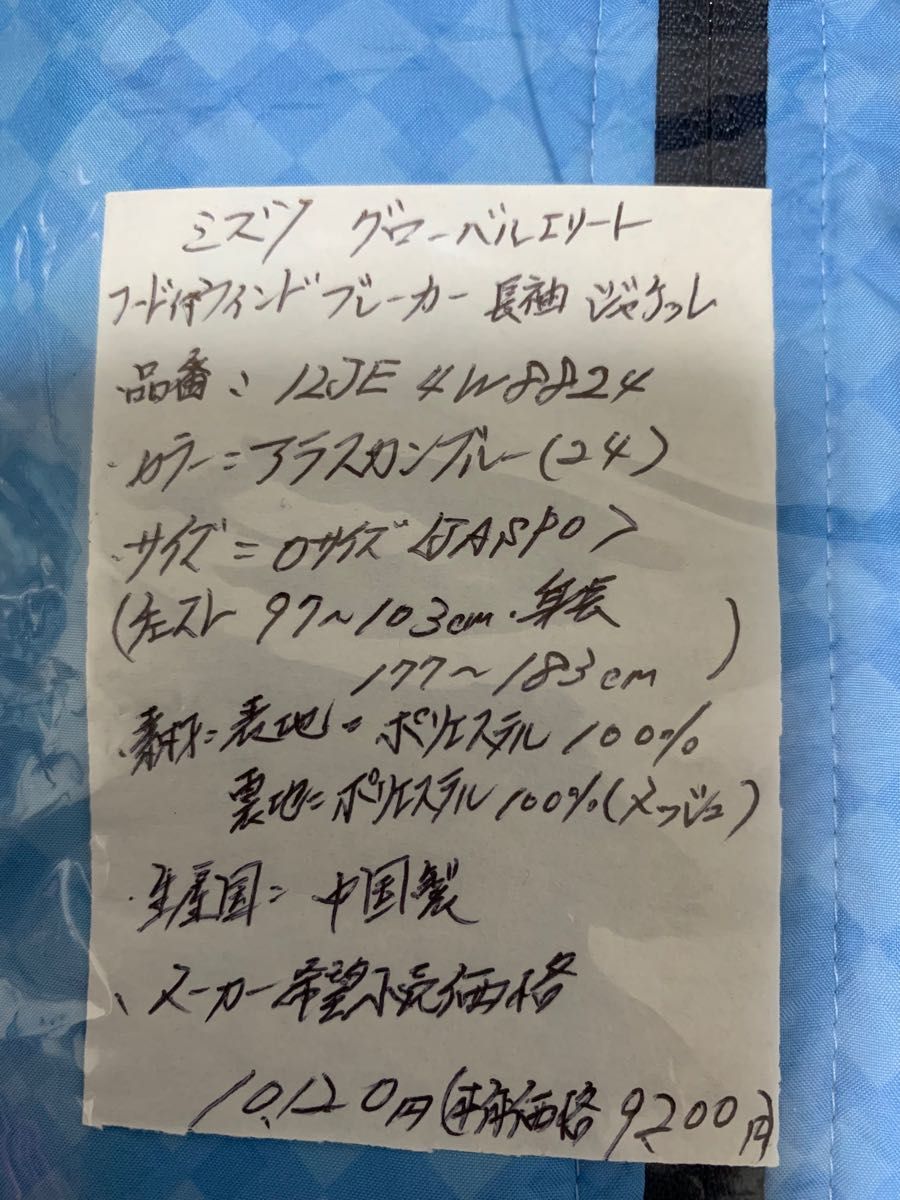 ミズノ グローバルエリート
フード付ウィンドブレーカー 長袖 ジャケット
品番、12JE4W8824
・カラー=アラスカンブルー(24)
・サイズ=Oサイズ〈JASPO〉
(チェスト 97~103cm・身長
177~183cm)
・素材=表地=ポリエステル100%
裏地=ポリエステル100%(メッシュ)
・生産国=中国製
、メーカー希望小売価格
10,120円(本体価格 9,200円